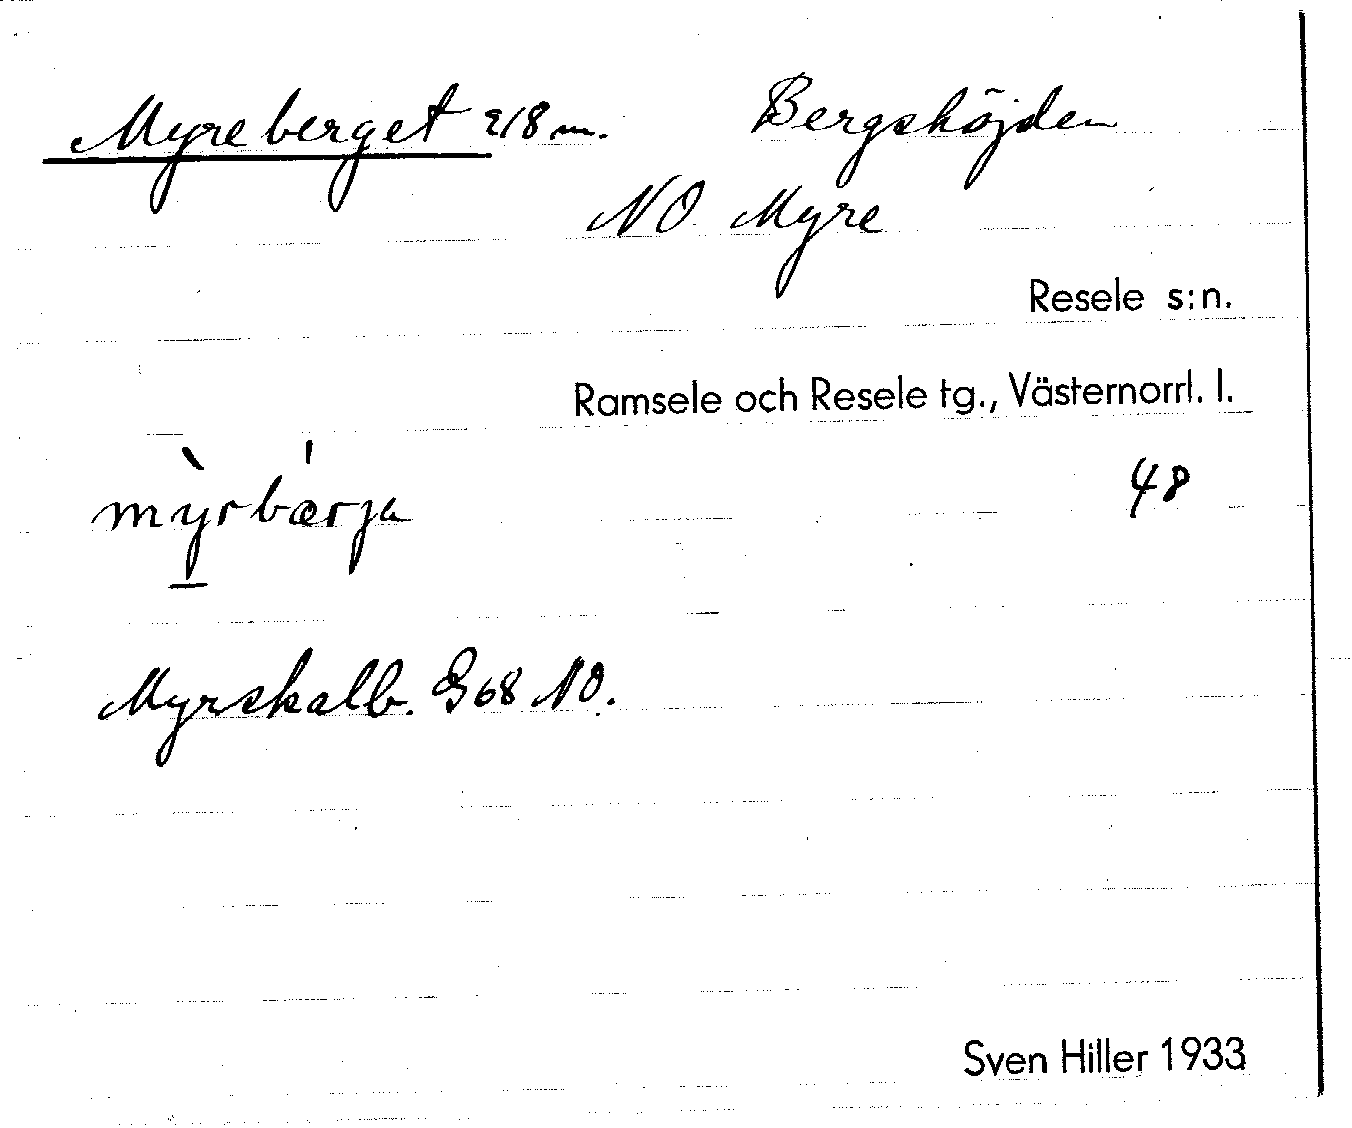 Myreberget 218 m. Bergshöjden
NO Myre
Resele s:n.
Ramsele och Resele tg., Västernorrl. l.
mỳrbǽrja 48
Myrskalb. G68 NO.
Sven Hiller 1933